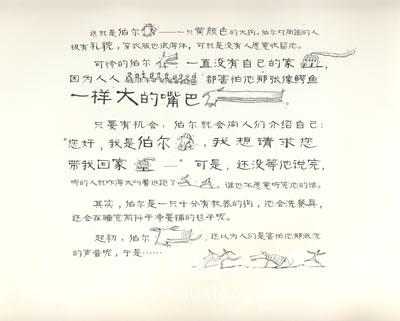 这就是伯尔——一只黄颜色的大狗。伯尔对周围的人
很有礼貌，穿衣服也很得体，可就是没有人愿意收留他。
可怜的伯尔一直没有自己的家，
因为人人都害怕他那张像鳄鱼
一样大的嘴巴。
只要有机会，伯尔就会向人们介绍自己：
“您好，我是伯尔，我想请求您
带我回家……”可是，还没等他说完，
听的人就大叫着远跑了。谁也不愿意听完他的话。
其实，伯尔是一只十分有教养的狗，他会洗餐具，
还会在睡觉前干净要铺的毯子呢。
起初，伯尔还以为人们是害怕他那低沉
的声音呢，于是……